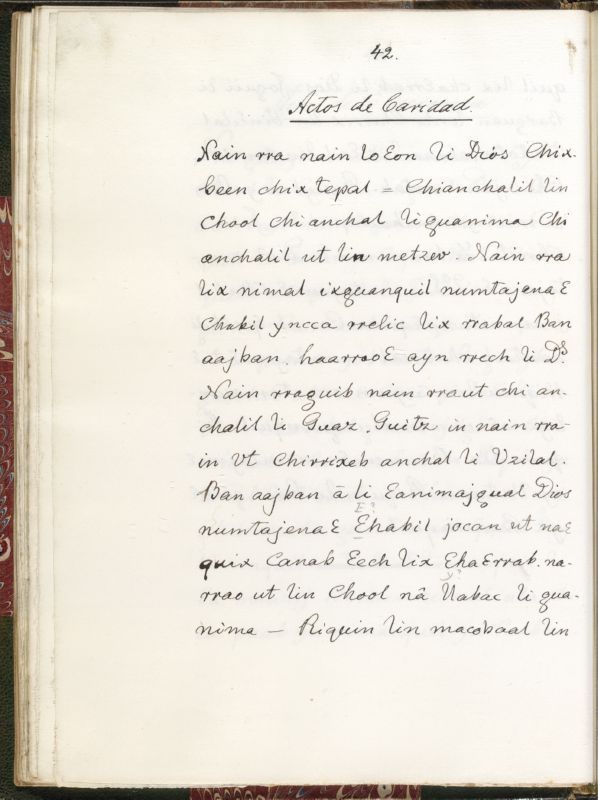 42.
Actos de Caridad.
Nain rra nain loEon li Dios Chix-
been chix tepal = Chianchalil lin
Chool chi anchal li guanima Chi
anchalil ut lin metzev. Nain rra
lix nimal ixguanquil numtajenaE
Chakil yncca rrelic lix rrabal Ban
aajban. haarrooE ayn rrech li Ds.
Nain rraguib nain rraut chi an-
chalil li Guaz. Guitz in nain rra-
in Vt Chirrixeb anchal li Vzilal.
Ban aajban ā li Eanimajgual Dios
numtajenaE Ehakil jocan ut naE
quix Canab Eech lix EhaErrab. na-
rrao ut lin Chool nâ Uabac li gua-
nima — Riquin lin macobaal lin